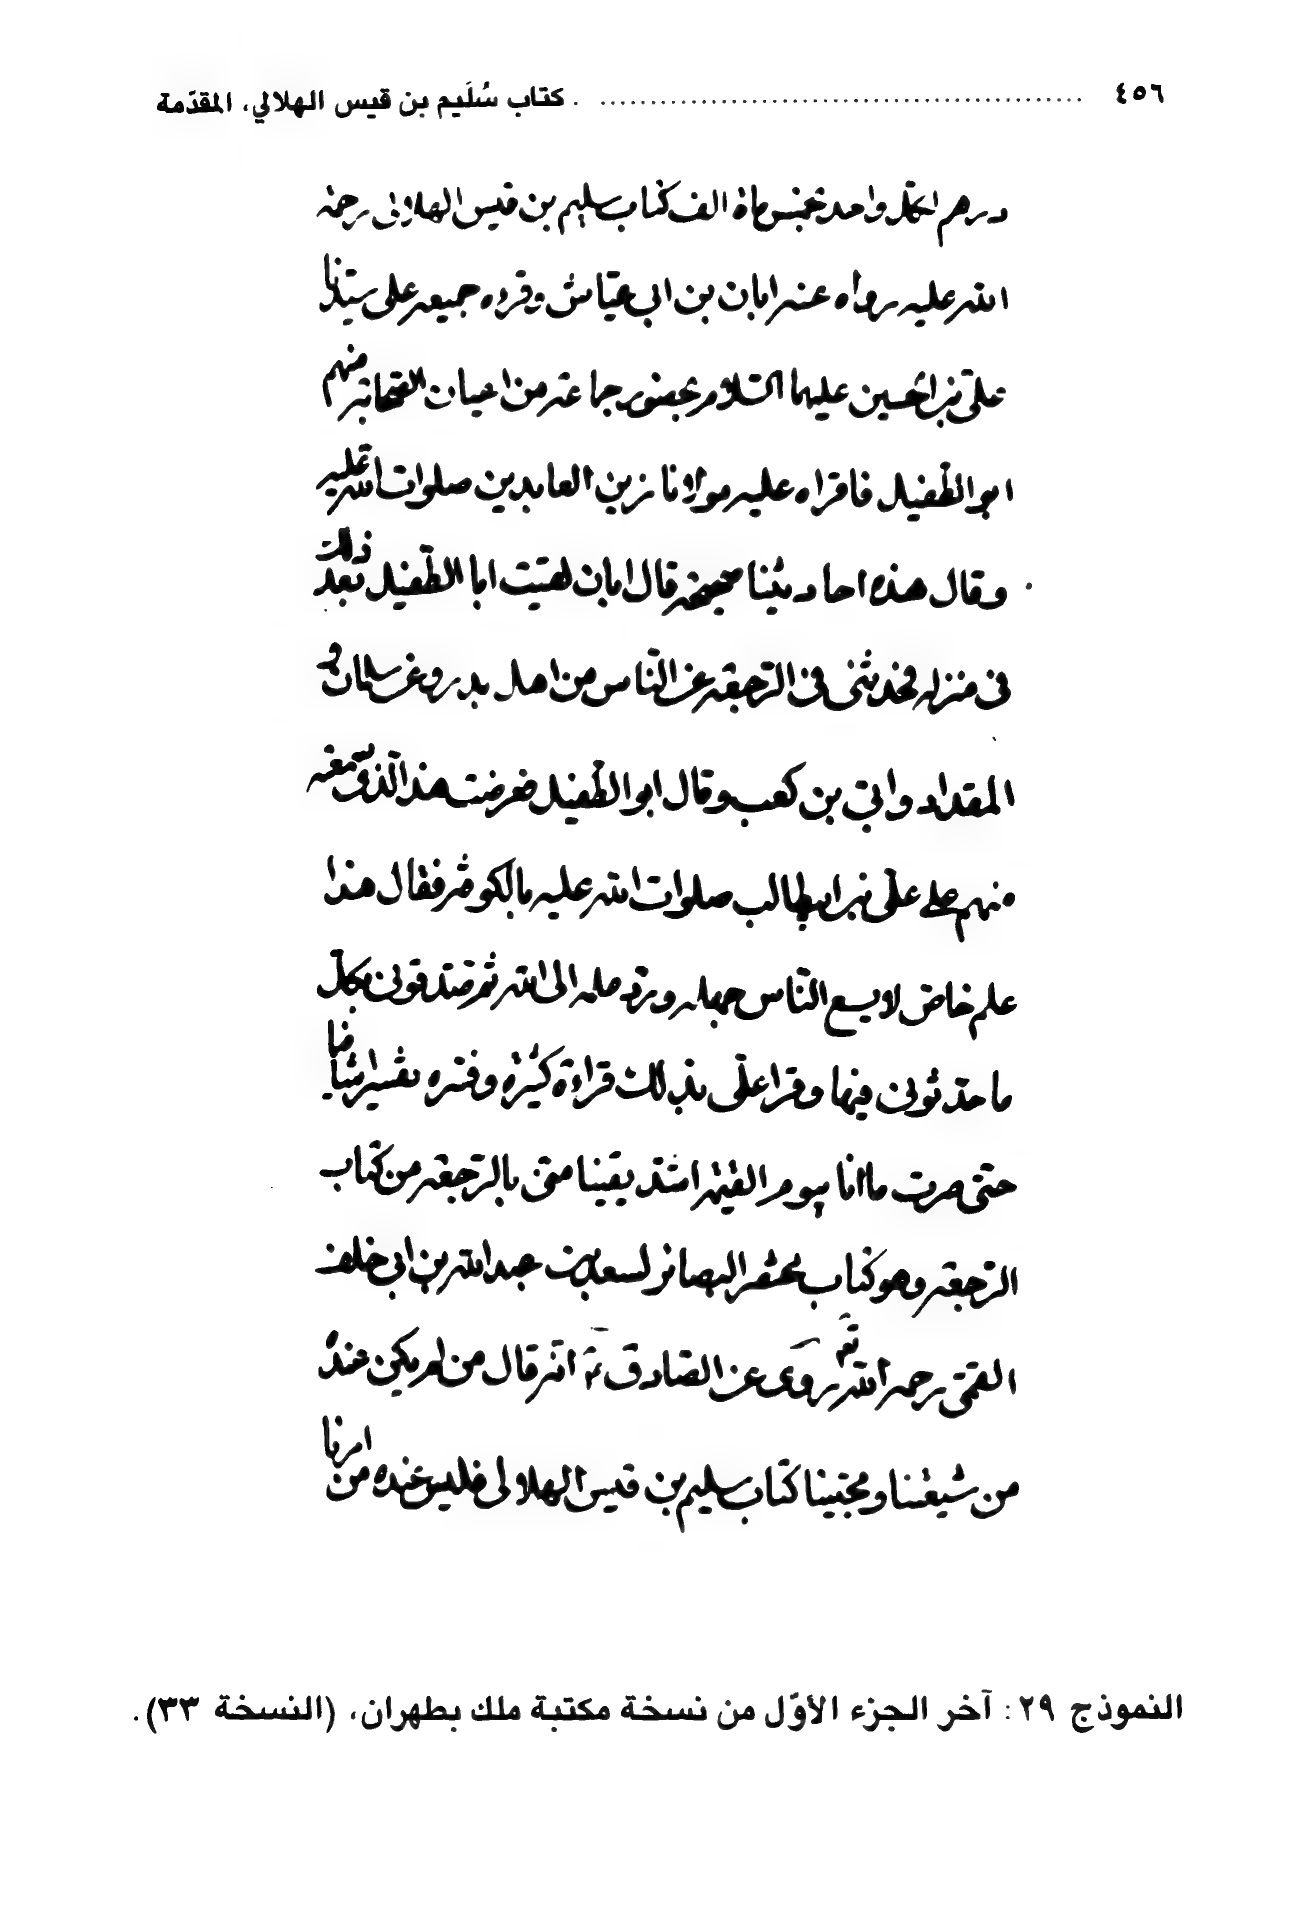 ٤٥٦ ........................................ كتاب سُلَيم بن قيس الهلالي، المقدّمة
درهم لكل واحد خمس ماة الف كتاب سليم بن قيس الهلالى رحمة
الله عليه رواه عنه ابان بن ابى عيّاش وقروه جميعه على سيّدنا
علىّ بن الحسين عليهما السّلام بحضور جماعة من اعيان الصّحابة منهم
ابو الطّفيل فاقراه عليه مولانا زين العابدين صلوات الله عليه
وقال هذه احاديثنا صحيحة قال ابان لقيت ابا الطّفيل بعد ذلك
فى منزله فحدّثنى فى الرّجعة عن النّاس من اهل بدر وعن سلمان و
المقداد وابىّ بن كعب وقال ابو الطّفيل فعرضت هذا الّذى سمعته
منهم على علىّ بن ابيطالب صلوات الله عليه بالكوفة فقال هذا
علم خاصّ لا يسع النّاس جهله وردّ علمه الى الله ثم صدّقونى بكلّ
ما حدّثونى فيها وقرا علىّ بذلك قراءة كثيرة وفسّره تفسيرا شافيا
حتّى صرت ما انا بيوم القيمة اشدّ يقينا منّى بالرّجعة من كتاب
الرّجعة وهو كتاب مختصر البصائر لسعد بن عبد الله بن ابى خلف
القمّى رحمه الله تع روى عن الصّادق انّه قال من لم يكن عنده
من شيعتنا ومحبّينا كتاب سليم بن قيس الهلالى فليس عنده من امرنا
النموذج ٢٩ : آخر الجزء الأوّل من نسخة مكتبة ملك بطهران، (النسخة ٣٣).